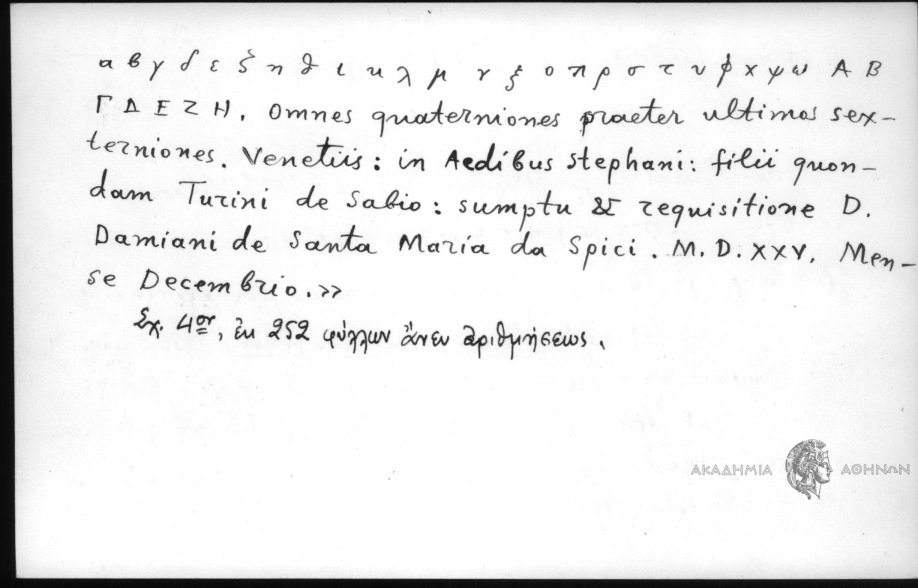 α β γ δ ε ζ η θ ι κ λ μ ν ξ ο π ρ σ τ υ φ χ ψ ω Α Β
Γ Δ Ε Ζ Η. Omnes quaterniones praeter ultimos sex-
terniones. Venetiis: in Aedibus Stephani: filii quon-
dam Turini de Sabio: sumptu & requisitione D.
Damiani de Santa Maria da Spici. M.D.XXV. Men-
se Decembrio.»
Σχ. 4ον, ἐκ 252 φύλλων ἄνευ ἀριθμήσεως.
ΑΚΑΔΗΜΙΑ ΑΘΗΝΩΝ